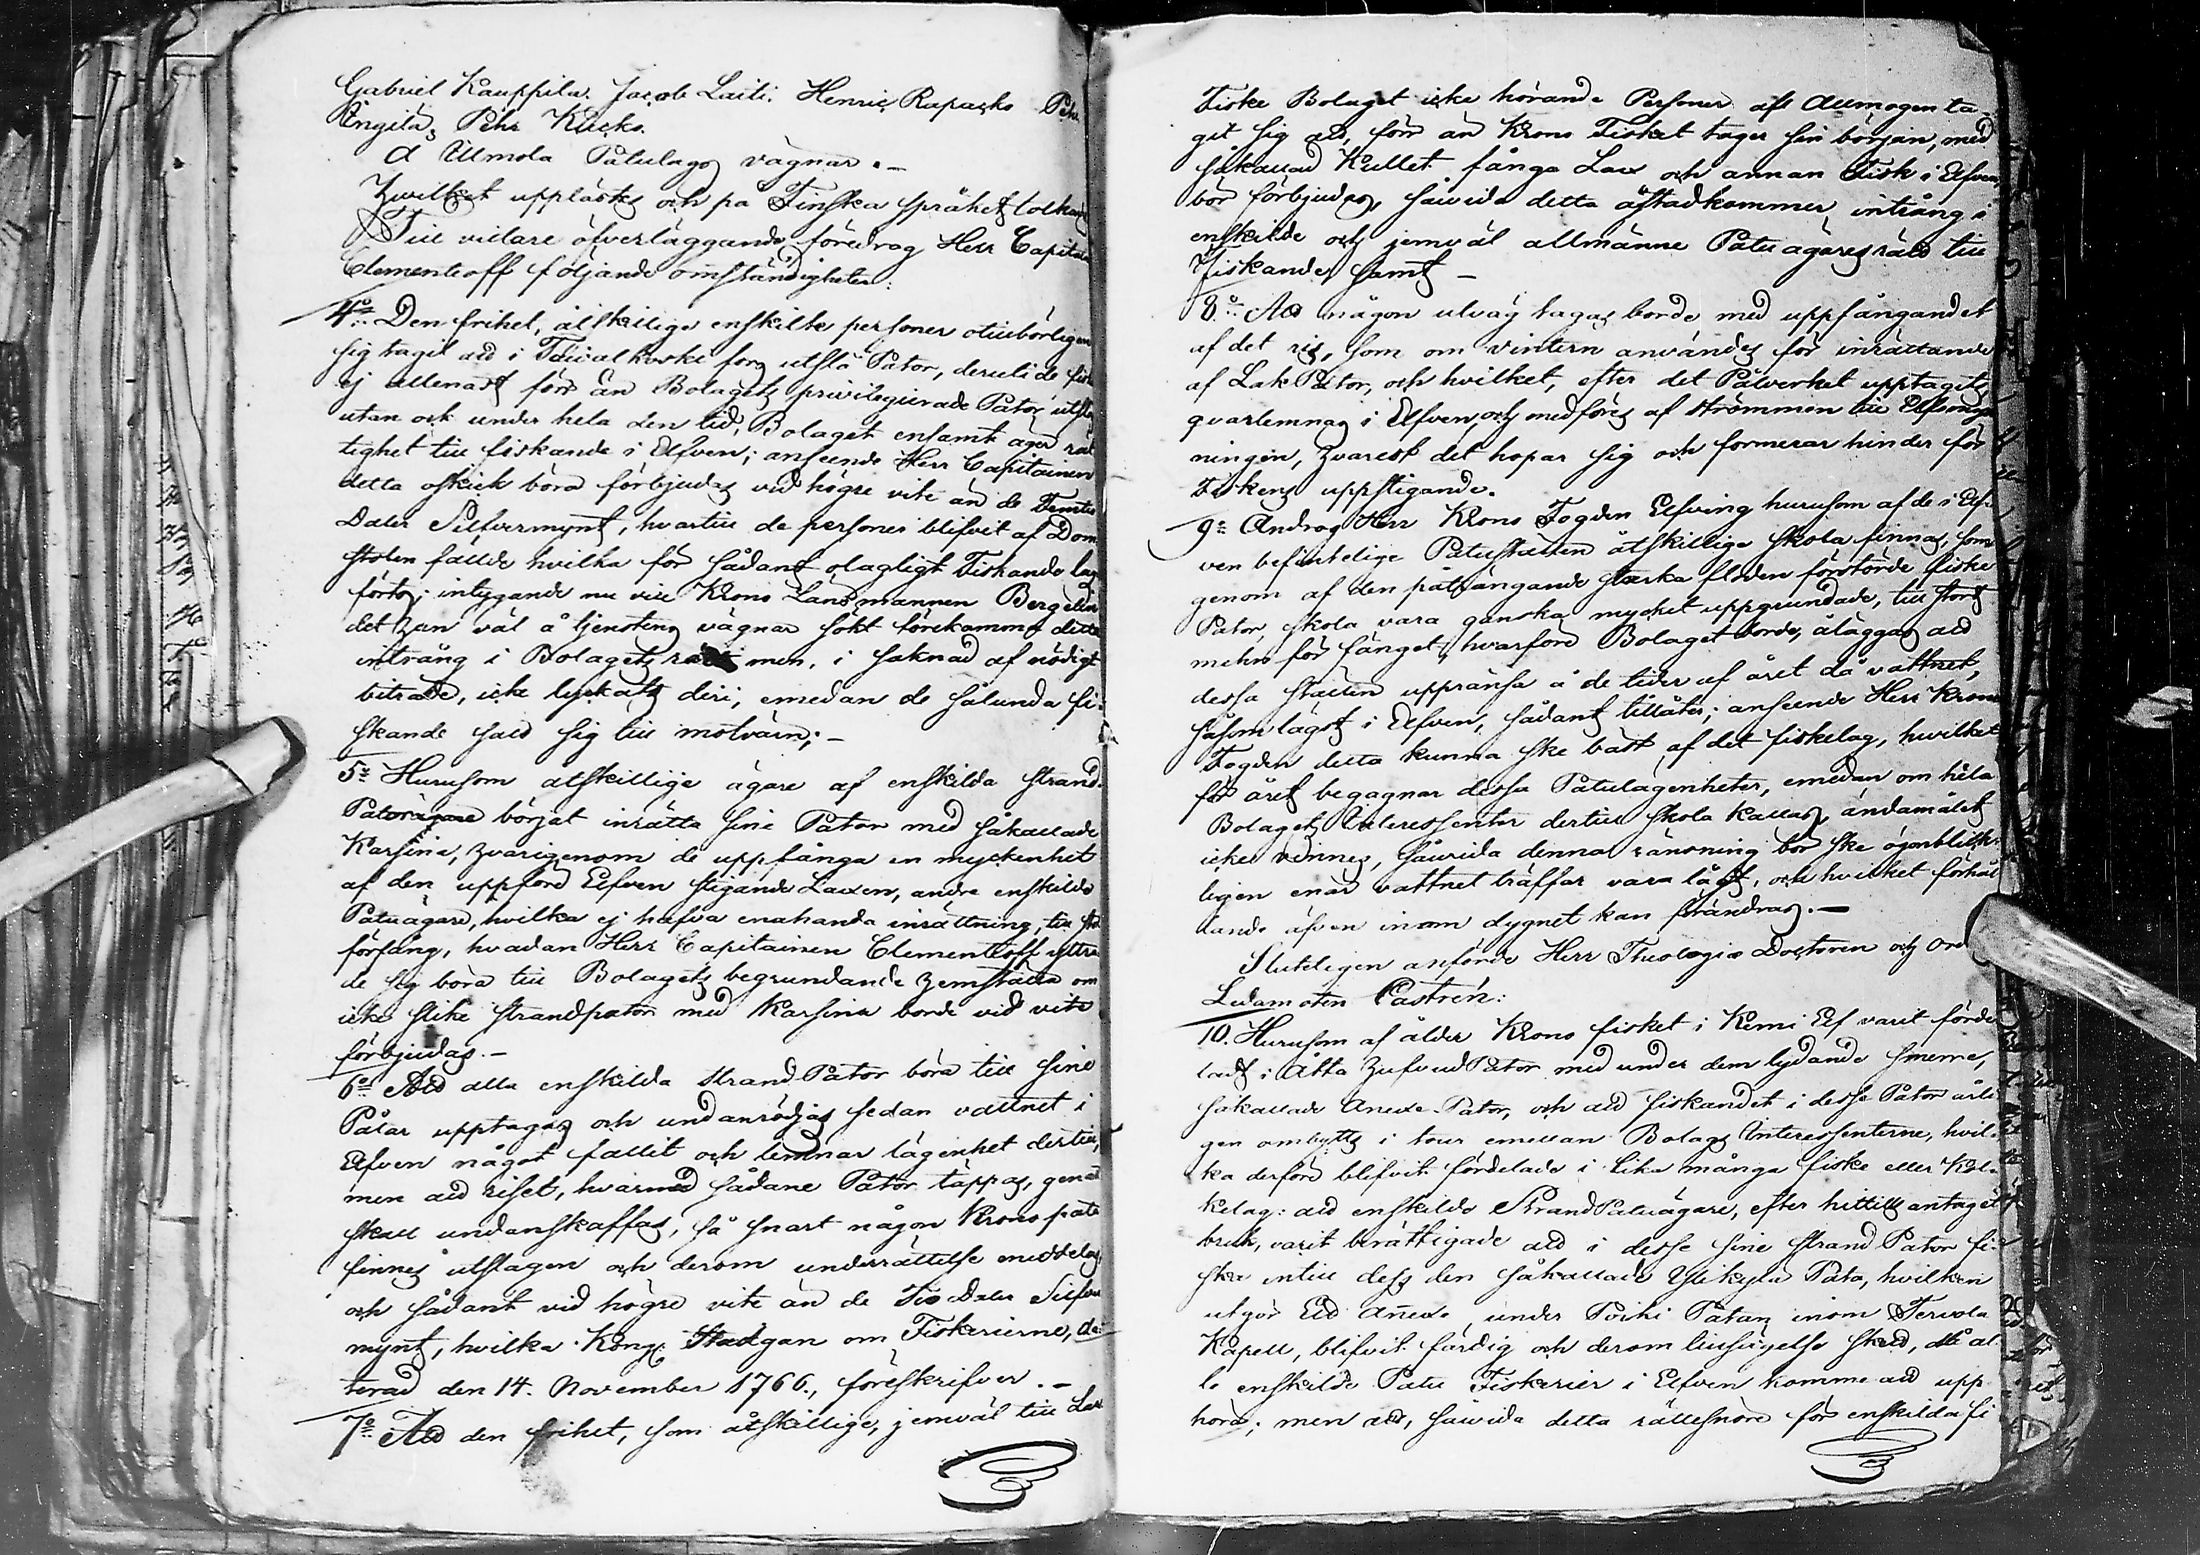 Gabriel Kauppila. Jacob Laiti. Henric Rapacko Pehr
Ringila, Pehr Kucko.
å Allmola Påtulags vägnar. –
Hvilket upplästes och på Finska språket tolkades
Till vidare öfverläggande föredrog Herr Capitain
Clementeoff följande omständigheter:
4:o Den frihet, åtskillige enskilte personer otillbörligen
sig tagit att i Taivalkoski fors utslå Pator, deruti de fiska
ej allenast förr än Bolagets privilegierade Pator utslås
utan ock under hela den tid, Bolaget ensamt äger rät
tighet till fiskande i Elfven; anseende Herr Capitainen
detta oskick böra förbjudas vid högre vite än de Femtio
Daler Silfvermynt, hvartill de personer blifvit af Dom
stolen fällde hvilka för sådant olagligt Fiskande lag
förts; intygande nu väl Krono Länsmannen Bergelin
det han väl å tjenstens vägnar sökt förekomma detta
intrång i Bolagets rätt men, i saknad af nödigt
biträde, icke lyckats deri, emedan de sålunda fi-
skande satt sig till motvärn; –
5:o Hurusom åtskillige ägare af enskilda strand-
Patorägare börjat inrätta sine Pator med såkallade
Karsina, hvarigenom de uppfånga en myckenhet
af den uppföre Elfven stigande Laxen, andre enskilde
Påtuägare, hvilka ej hafva enahanda inrättning, till stor
förfång, hvadan Herr Capitainen Clementeoff yttra
de sig böra till Bolagets begrundande hemställa om
icke slike strandpator med Karsina borde vid vite
förbjudas. –
6:o Att alla enskilda Strand Pator böra till sine
Pålar upptagas och undanrödjas sedan vattnet i
Elfven något fallit och lemnar lägenhet dertill,
men att riset, hvarmed sådane Pator täppas, genast
skall undanskaffas, så snart någon Krono pata
finnes utslagen och derom underrättelse meddelas,
och sådant vid högre vite än de Tio Daler Silfver
mynt, hvilka Kongl. Stadgan om Fiskerierne, da-
terad den 14. November 1766., föreskrifver. –
7:o Att den frihet, som åtskillige, jemväl till Lax
Fiske Bolaget icke hörande Personer af Allmogen ta-
git sig att, förr än Krono Fisket tager sin början, med
såkallad Kullet fånga Lax och annan Fisk i Elfven,
bör förbjudas, såvida detta åstadkommer intrång i
enskilde och jemväl allmänne Patu ägares rätt till
Fiskande, samt –
8:o Att någon utväg tagas borde med uppfångandet
af det ris, som om vintern användes för inrättande
af Lak Pator, och hvilket, efter det Pålverket upptagits
qvarlemnas i Elfven och medföres af strömmen till Elfsmyn
ningen, hvarest det hopar sig och formerar hinder för
Fiskens uppstigande.
9:o Androg Herr Krono Fogden Elfving hurusom af de i Elf-
ven befintelige Patuställen åtskillige skola finnas, som
genom af den påträngande starka floden förstörde fiske
Pator, skola vara ganska mycket uppgrundade, till stort
mehn för fånget, hvarföre Bolaget borde åläggas att
dessa ställen uppränsa å de tider af året då vattnet,
såsom lägst i Elfven, sådant tillåter; anseende Herr Krono
Fogden detta kunna ske bäst af det fiskelag, hvilket
för året begagnar dessa Påtulägenheter, emedan om hela
Bolagets Interessenter dertill skola kallas, ändamålet
icke vinnes, såvida denna ränsning bör ske ögonblick-
ligen enär vattnet träffar vara lågt, och hvilket förhål
lande äfven inom dygnet kan förändras. –
Sluteligen anförde Herr Theologie Doctoren och
Ledamoten Castrén:
10. Hurusom af ålder Krono fisket i Kemi Elf varit förde
ladt i Åtta Hufvud Pator med under dem lydande smerre,
såkallade Anexe-Pator, och att fiskandet i desse Pator årli
gen ombytts i tour emellan Bolags Interessenterne, hvil-
ka derföre blifvit fördelade i lika många fiske eller Kol-
kelag: att enskilde Strand Patuägare, efter hittills antaget
bruk, varit berättigade att i desse sine strand Pator fi-
ska intill dess den såkallade Ylikylä Pata, hvilken
utgör Ett Anexe under Poiki Patan inom Tervola
Kapell, blifvit färdig och derom tillsägelse skett, då al-
le enskilde Patu Fiskerier i Elfven komme att upp
höra; men att, såvida detta rättesnöre för enskilda fi